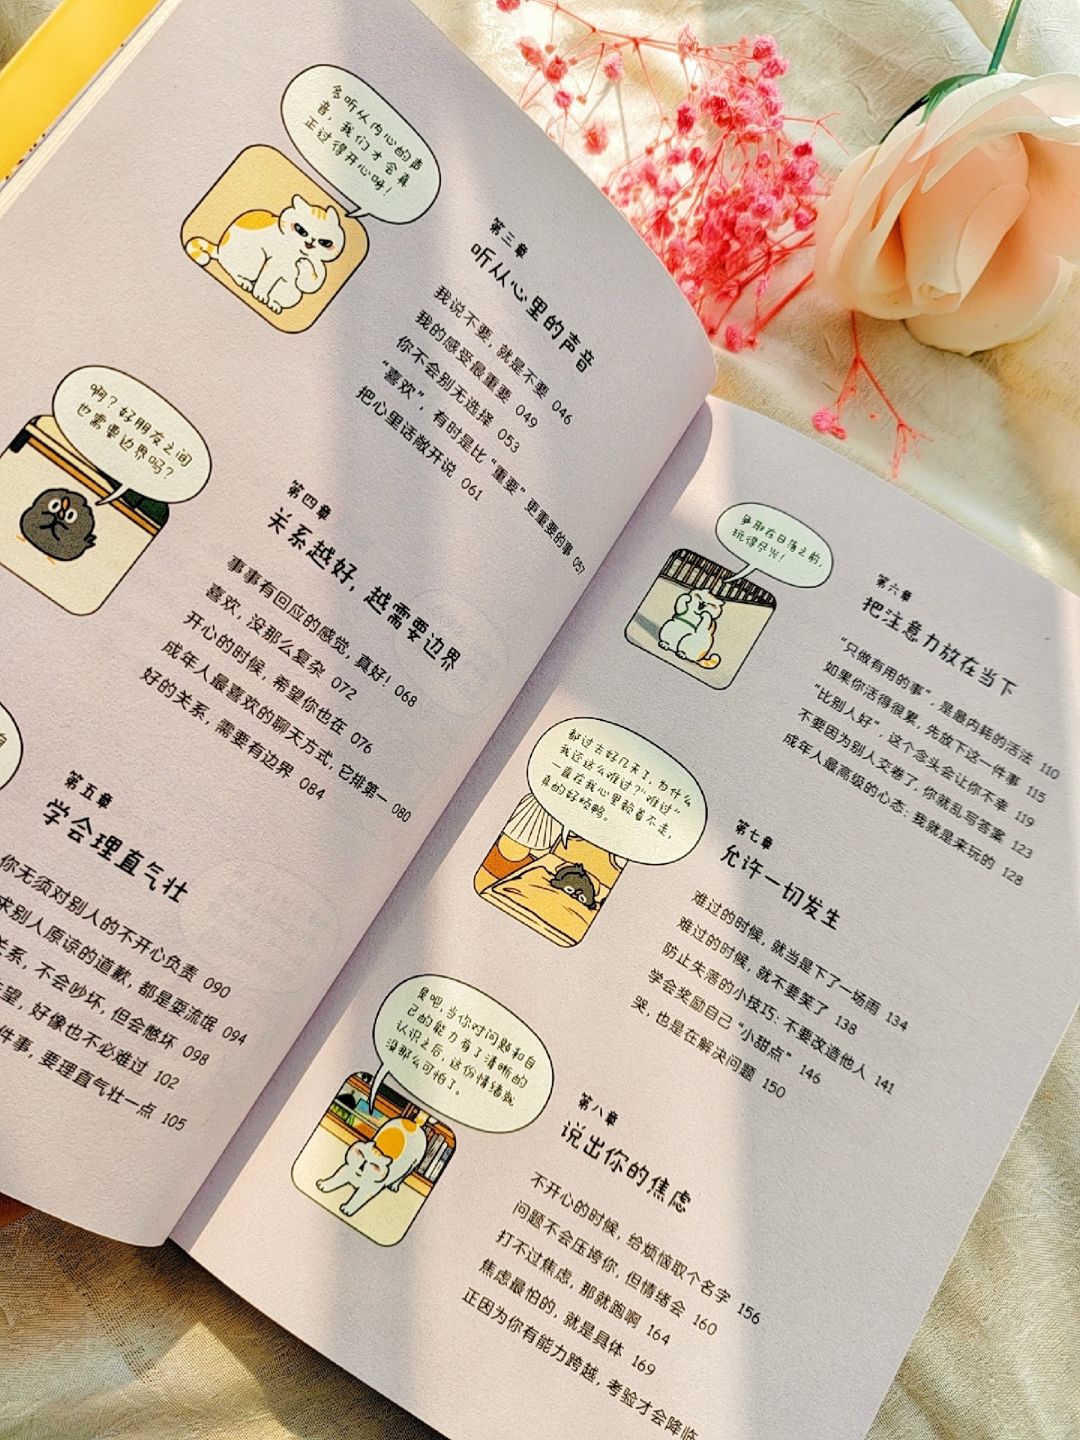 多听从内心的声
音，我们才会真
正过得开心呀！
第三章
听从心里的声音
我说不要，就是不要 046
我的感受最重要 049
你不会别无选择 053
“喜欢”，有时是比“重要”更重要的事 057
把心里话敞开说 061
啊？好朋友之间
也需要边界吗？
第四章
关系越好，越需要边界
事事有回应的感觉，真好！ 068
喜欢，没那么复杂 072
开心的时候，希望你也在 076
成年人最喜欢的聊天方式，它排第一 080
好的关系，需要有边界 084
第五章
学会理直气壮
你无须对别人的不开心负责 090
求别人原谅的道歉，都是耍流氓 094
关系，不会吵坏，但会憋坏 098
望，好像也不必难过 102
件事，要理直气壮一点 105
争取在日落之前，
玩得尽兴！
第六章
把注意力放在当下
“只做有用的事”，是最内耗的活法 110
如果你活得很累，先放下这一件事 115
“比别人好”，这个念头会让你不幸 119
不要因为别人交卷了，你就乱写答案 123
成年人最高级的心态：我就是来玩的 128
都过去好几天了，为什么
我还这么难过？“难过”
一直在我心里赖着不走，
真的好烦鸭。
第七章
允许一切发生
难过的时候，就当是下了一场雨 134
难过的时候，就不要笑了 138
防止失落的小技巧：不要改造他人 141
学会奖励自己“小甜点” 146
哭，也是在解决问题 150
是吧，当你对问题和自
己的能力有了清晰的
认识之后，这份情绪就
没那么可怕了。
第八章
说出你的焦虑
不开心的时候，给烦恼取个名字 156
问题不会压垮你，但情绪会 160
打不过焦虑，那就跑啊 164
焦虑最怕的，就是具体 169
正因为你有能力跨越，考验才会降临